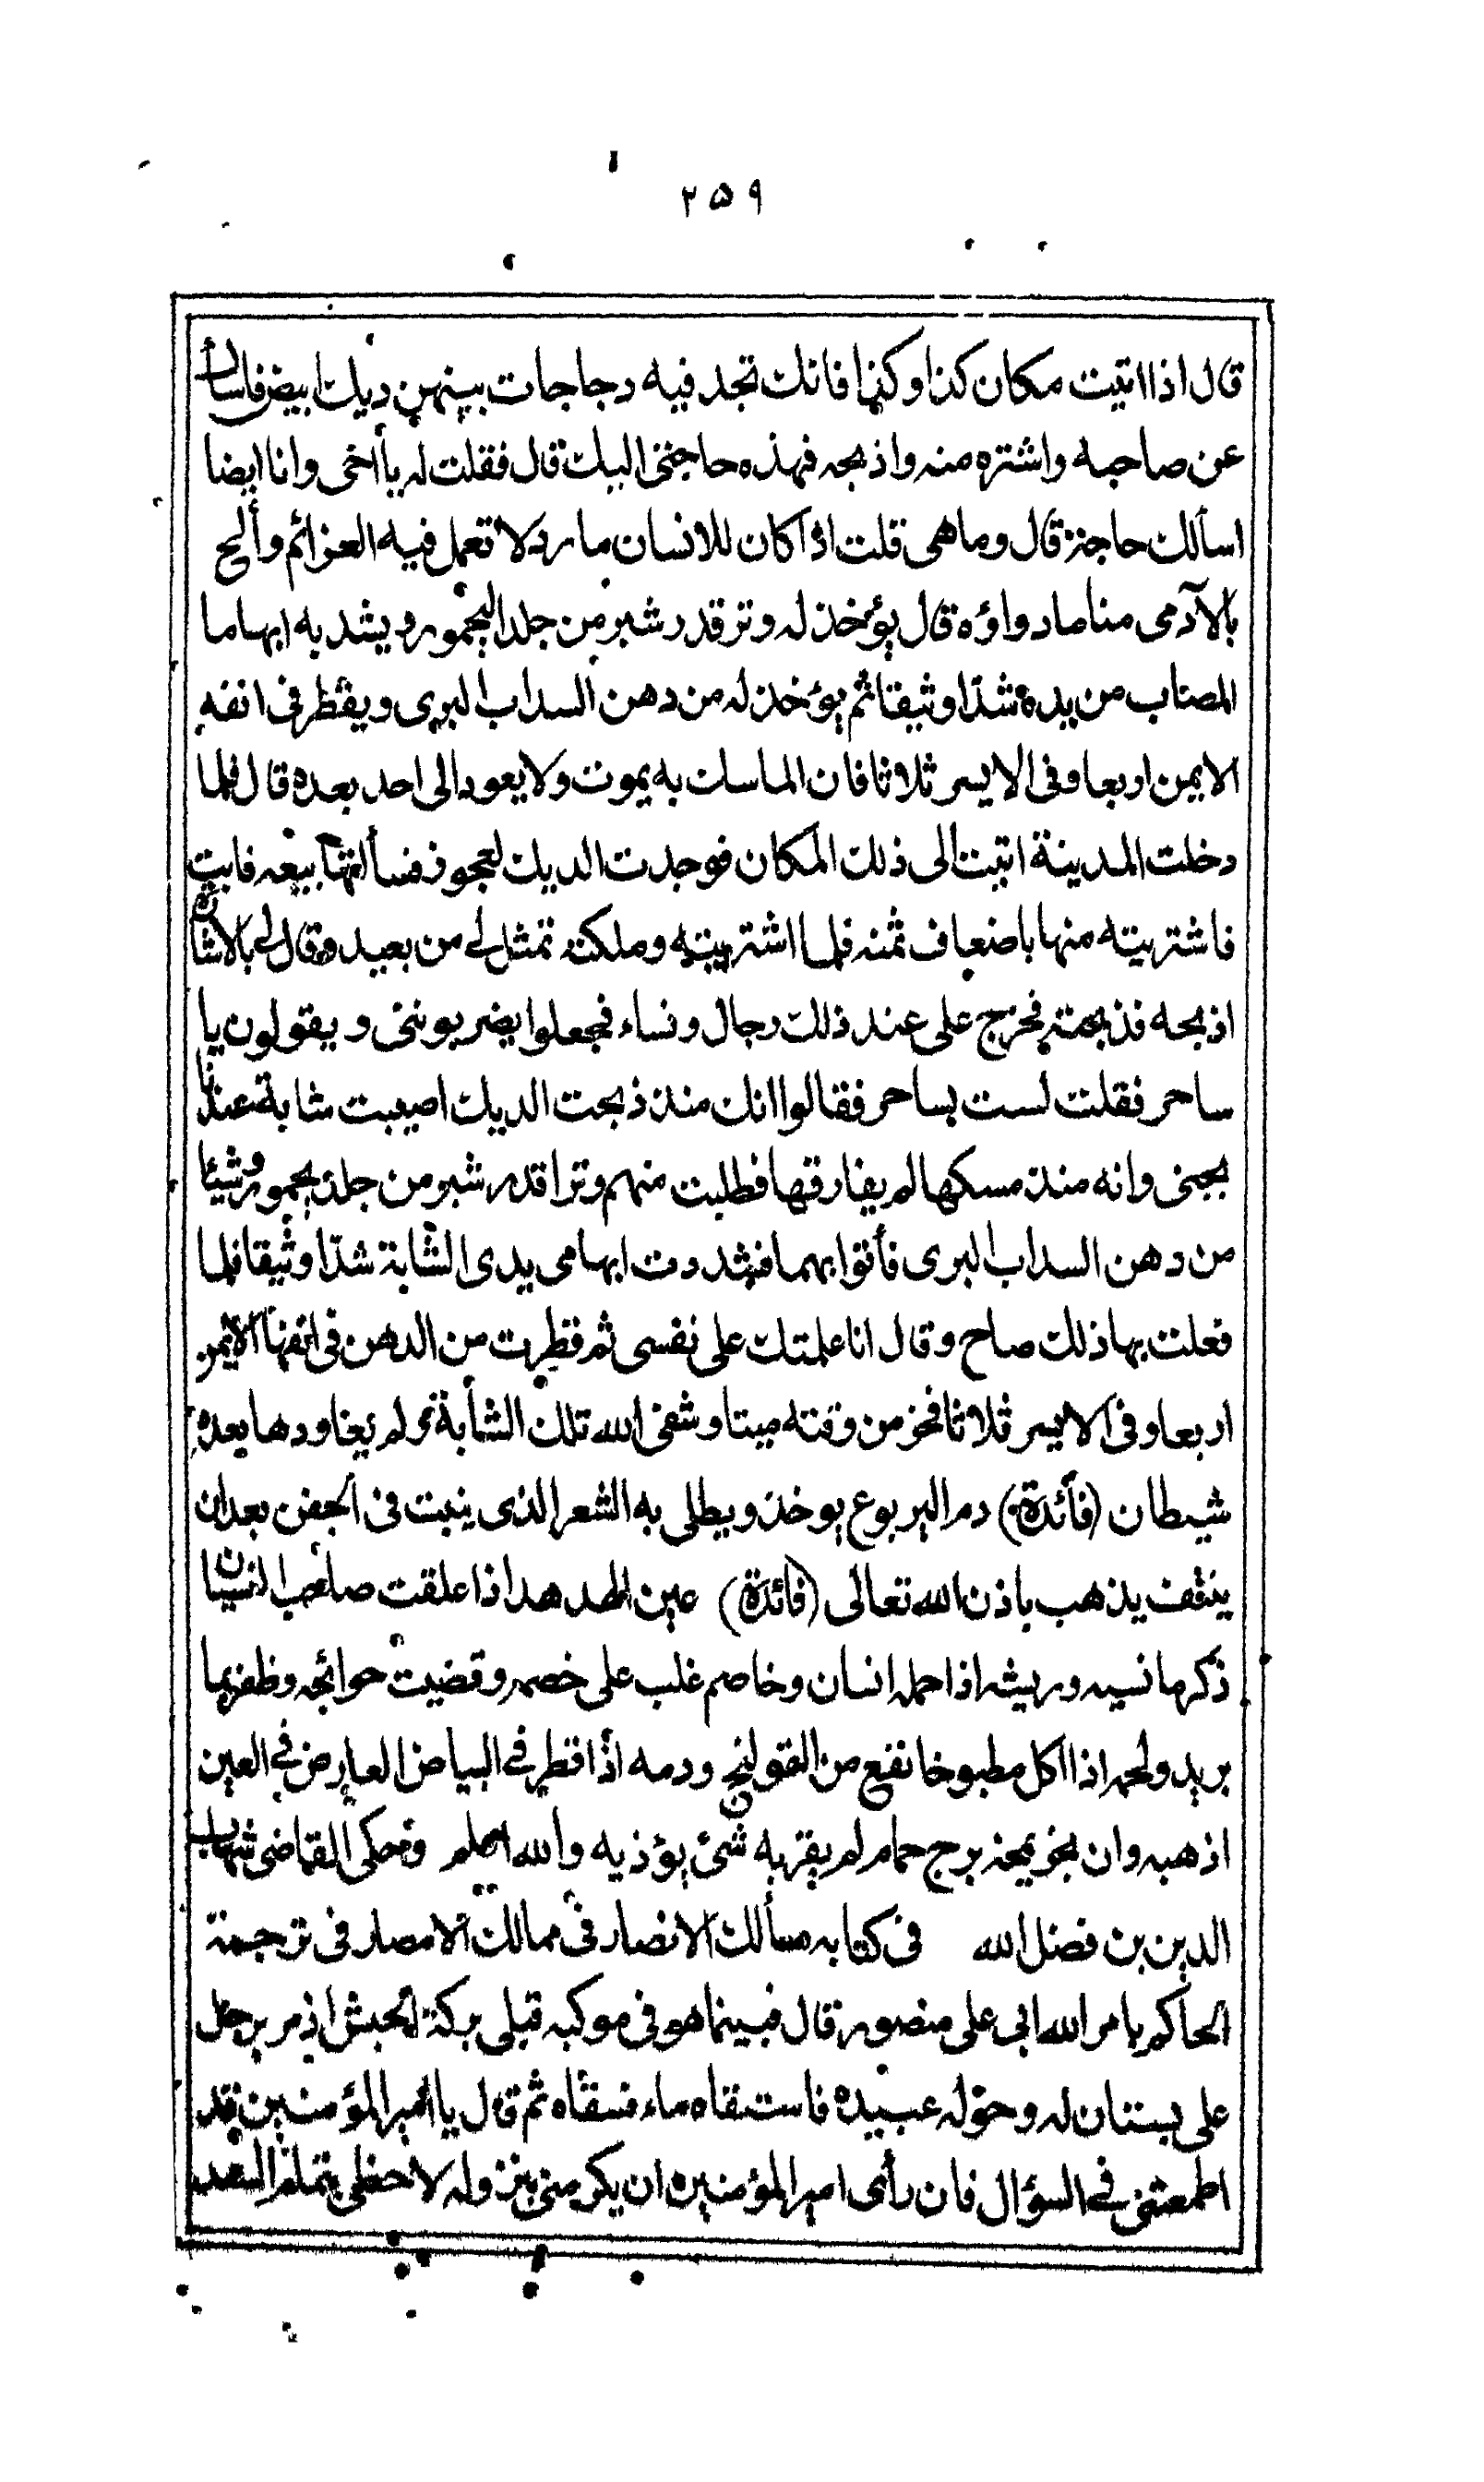 ٢٥٩
قال اذا اتيت مكان كذا وكذا فانك تجد فيه دجاجات بينهن ديك ابيض فاسأل
عن صاحبه واشتره منه واذبحه فهذه حاجتى اليك قال فقلت له يا أخى وانا ايضا
اسألك حاجة قال وما هى قلت اذا كان للانسان مارد لا تعمل فيه العزائم وألح
بالآدمى منا ما دواؤه قال يؤخذ له وتر قدر شبر من جلد اليحمور ويشد به ابهاما
المصاب من يده شدّا وثيقا ثم يؤخذ له من دهن السداب البرى ويقطر فى انفه
الايمن اربعا وفى الايسر ثلاثا فان الماسك به يموت ولا يعود الى احد بعده قال فلما
دخلت المدينة اتيت الى ذلك المكان فوجدت الديك لعجوز فسألتها بيعه فابت
فاشتريته منها باضعاف ثمنه فلما اشتريته وملكته تمثل لى من بعيد وقال لى بالاشارة
اذبحه فذبحته فخرج على عند ذلك رجال ونساء فجعلوا يضربوننى ويقولون يا
ساحر فقلت لست بساحر فقالوا انك منذ ذبحت الديك اصيبت شابة عندنا
بجنى وانه منذ مسكها لم يفارقها فطلبت منهم وترا قدر شبر من جلد يحمور وشيئا
من دهن السداب البرى فأتوا بهما فشددت ابهامى يدى الشابة شدّا وثيقا فلما
فعلت بها ذلك صاح وقال انا علمتك على نفسى ثم قطرت من الدهن فى انفها الايمن
اربعا وفى الايسر ثلاثا فخر من وقته ميتا وشفى الله تلك الشابة ولم يعاودها بعده
شيطان (فائدة) دم اليربوع يوخذ ويطلى به الشعر الذى ينبت فى الجفن بعد ان
ينتف يذهب باذن الله تعالى (فائدة) عين الهدهد اذا علقت صاحب النسيان
ذكر ما نسيه وريشه اذا حمله انسان وخاصم غلب على خصمه وقضيت حوائجه وظفر بما
يريد ولحمه اذا اكل مطبوخا نفع من القولنج ودمه اذا قطر فى البياض العارض فى العين
اذهبه وان بخر بمخه برج حمام لم يقربه شئ يؤذيه والله اعلم وحكى القاضى شهاب
الدين بن فضل الله فى كتابه مسألك الانصار فى ممالك الامصار فى ترجمة
الحاكم بامر الله ابى على منصور قال فبينما هو فى موكبه قبلى بركة الحبش اذ مر برجل
على بستان له وحوله عبيده فاستسقاه ماء فسقاه ثم قال يا امير المؤمنين قد
اطمعتنى فى السؤال فان رأى امير المؤمنين ان يكرمنى بنزوله لاحظى بتمام السعد